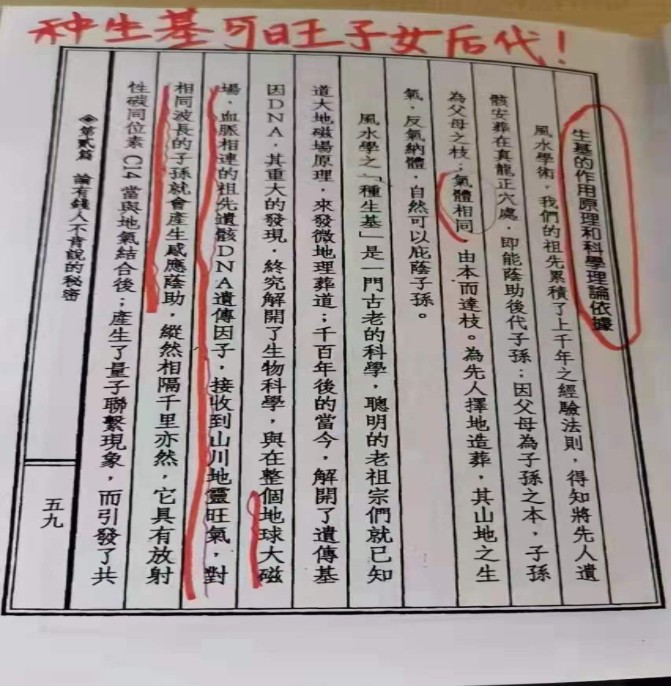 种生基可旺子女后代！
生基的作用原理和科學理論依據
風水學術，我們的祖先累積了上千年之經驗法則，得知將先人遺
骸安葬在真龍正穴處，即能蔭助後代子孫；因父母為子孫之本，子孫
為父母之枝；氣體相同，由本而達枝。為先人擇地造葬，其山地之生
氣，反氣納體，自然可以庇蔭子孫。
風水學之「種生基」是一門古老的科學，聰明的老祖宗們就已知
道大地磁場原理，來發微地理葬道；千百年後的當今，解開了遺傳基
因DNA，其重大的發現，終究解開了生物科學，與在整個地球大磁
場，血脈相連的祖先遺骸DNA遺傳因子，接收到山川地靈旺氣，對
相同波長的子孫就會產生感應蔭助，縱然相隔千里亦然，它具有放射
性碳同位素C14當與地氣結合後；產生了量子聯繫現象，而引發了共
◈第貳篇 論有錢人不肯說的秘密
五九